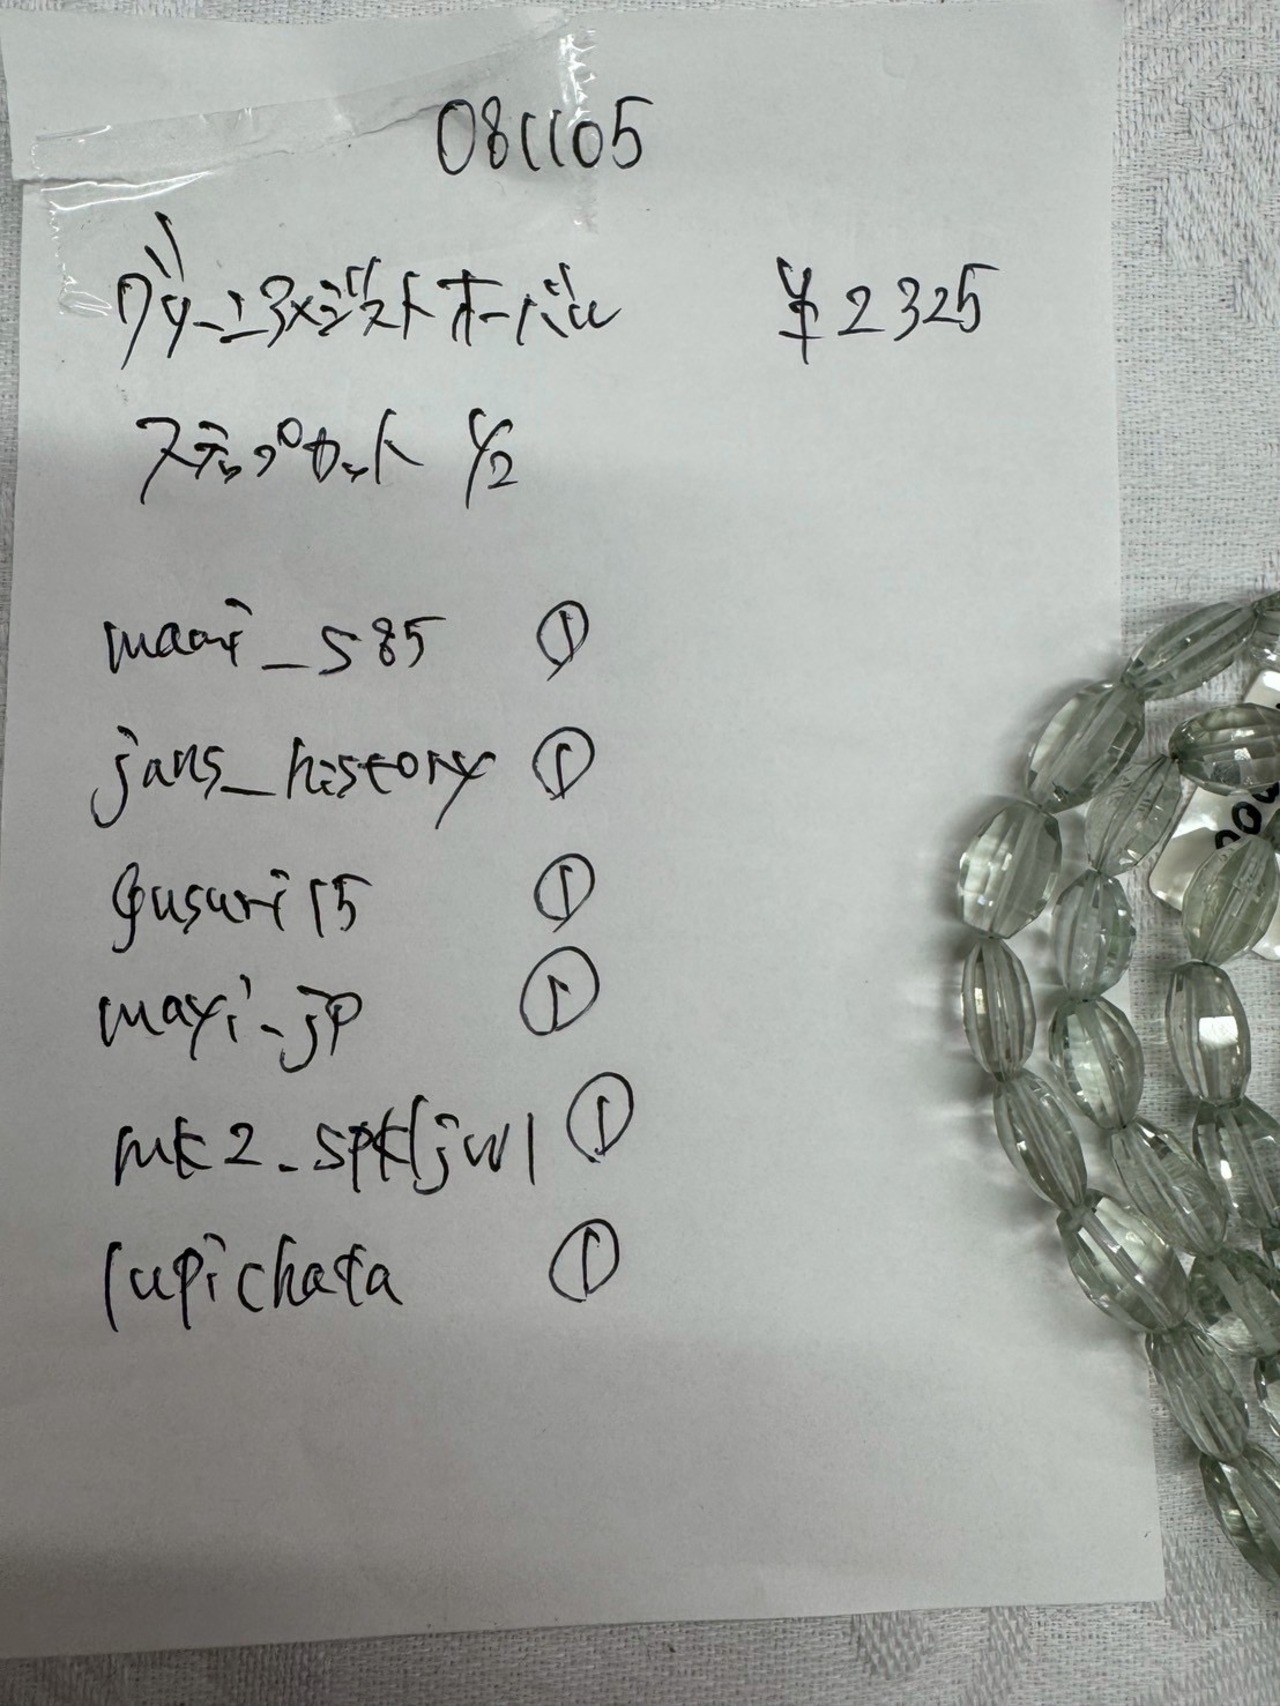 081105
グリーンアメジストオーバル ¥2325
ステップカット 1/2
maai_s85 ①
jans_history ①
gusuri15 ①
mayi_jp ①
mk2_spkljw1 ①
lupichata ①
00